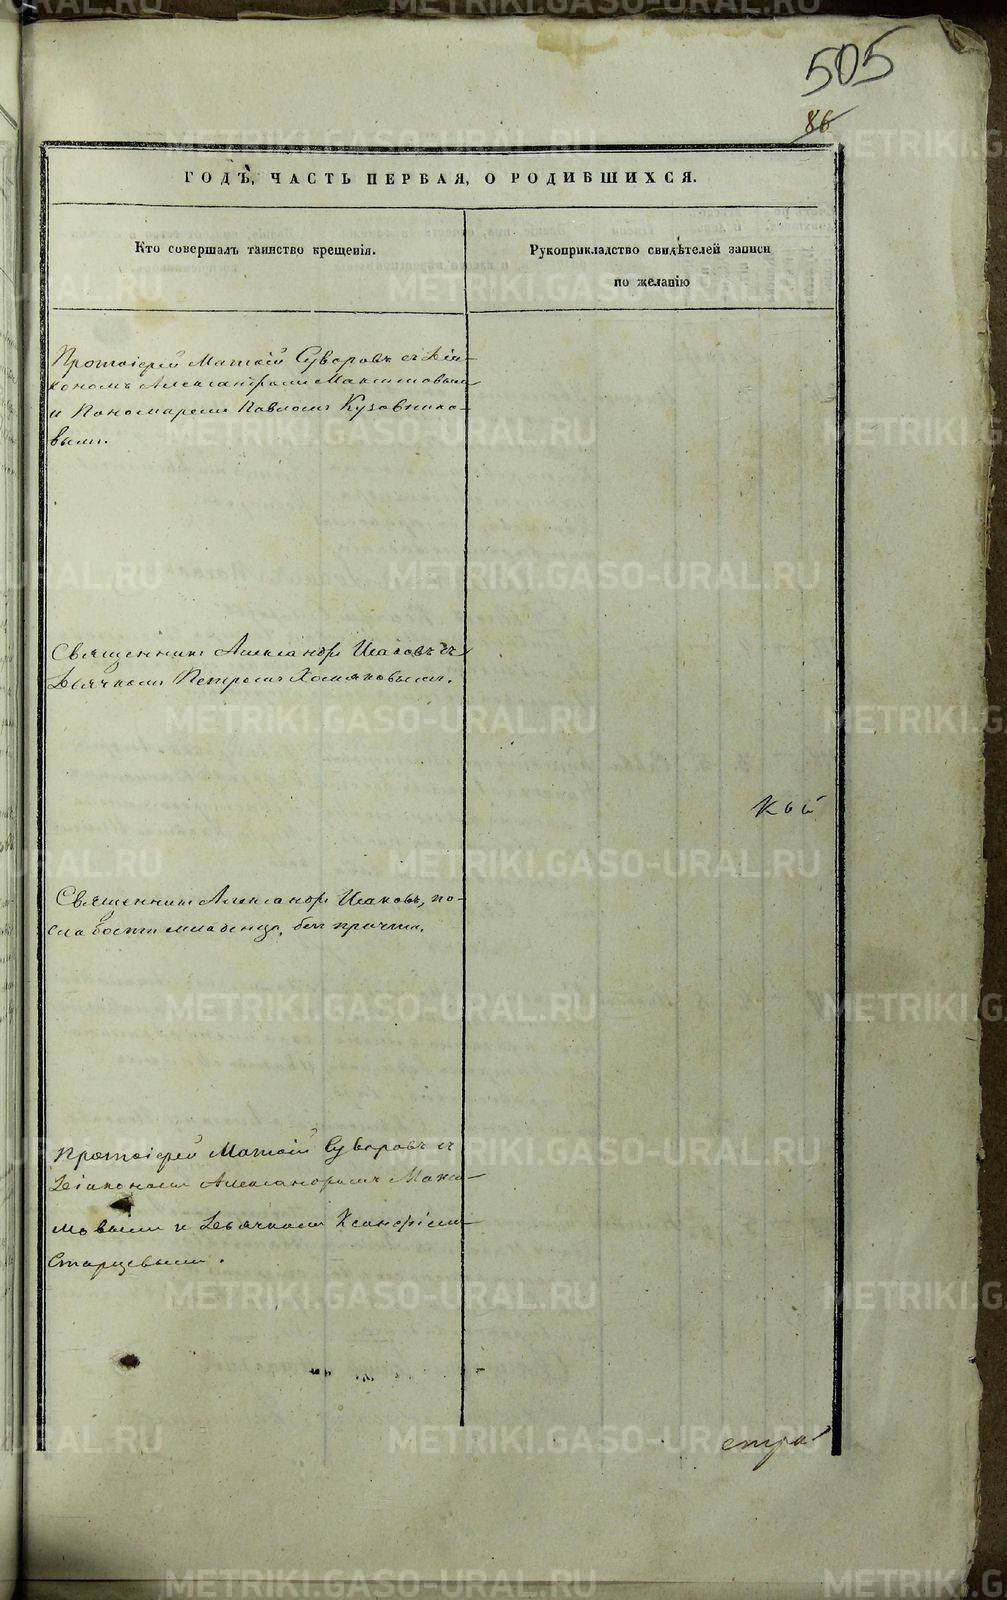 505
86
ГОДЪ, ЧАСТЬ ПЕРВАЯ, О РОДИВШИХСЯ.
Кто совершалъ таинство крещенія.
Рукоприкладство свидѣтелей записи
по желанію
Протоіерей Матѳій Суворовъ съ Діа-
кономъ Александромъ Максимовымъ
и Пономаремъ Павломъ Кузовнико-
вымъ.
Священникъ Александръ Исаковъ съ
Дьячкомъ Петромъ Хомяковымъ.
Священникъ Александръ Исаковъ, по
слабости младенца, безъ причта.
Протоіерей Матѳій Суворовъ съ
Діакономъ Александромъ Макси-
мовымъ и Дьячкомъ
Старцевымъ.
METRIKI.GASO-URAL.RU